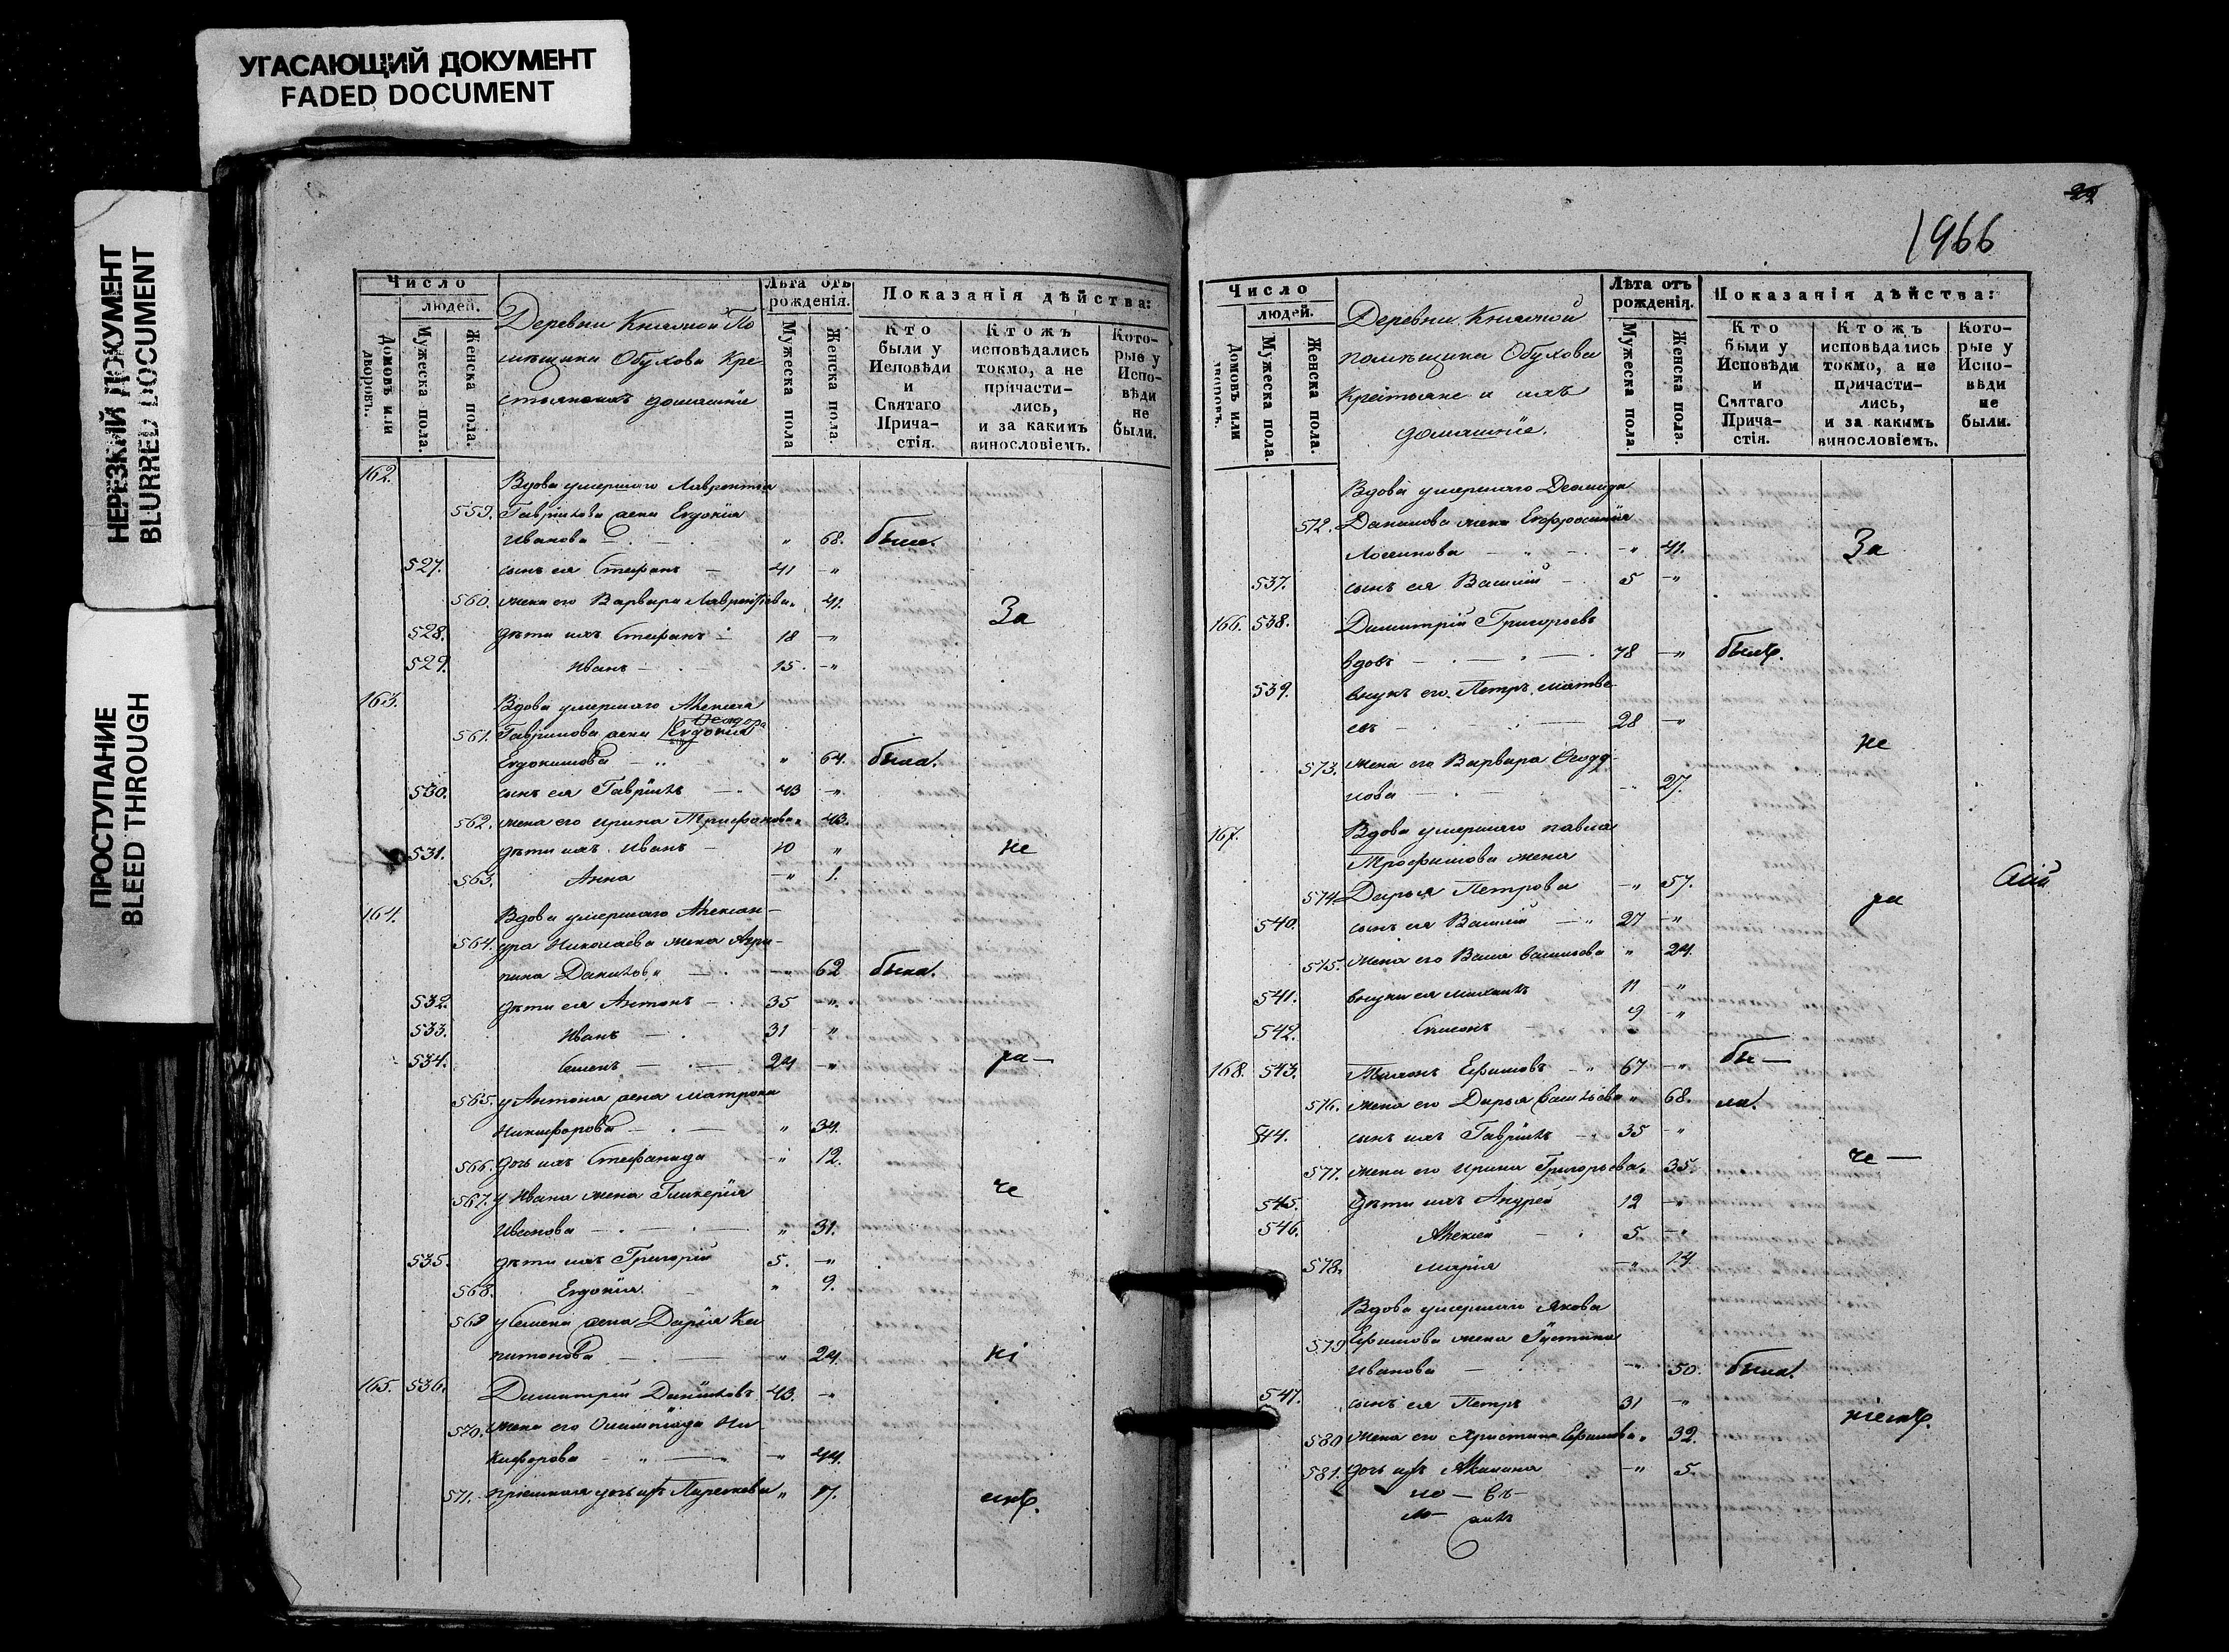 УГАСАЮЩИЙ ДОКУМЕНТ
FADED DOCUMENT
НЕРЕЗКИЙ ДОКУМЕНТ
BLURRED DOCUMENT
ПРОСТУПАНИЕ
BLEED THROUGH
Число
людей.
Домовъ или дворовъ.
Мужеска пола.
Женска пола.
Деревни Княжной По
мѣщика Обухова Кре-
стьянѣ домашніе
Лѣта отъ
рожденія.
Мужеска пола
Женска пола.
Показанія дѣйства:
Кто
были у
Исповѣди
и
Святаго
Прича-
стія.
Ктожъ
исповѣдались
токмо, а не
причасти-
лись,
и за какимъ
винословіемъ.
Кото-
рые у
Испо-
вѣди
не
были.
162.
Вдова умершаго Лаврентія
559. Гаврилова жена Евдокія
Иванова 68. была.
527. сынъ ея Стефанъ 41
560. жена его Варвара Лаврентіева 41.
За
528. дѣти ихъ Стефанъ 18
529. Иванъ 15.
163. Вдова умершаго Алексѣя
Ѳеодора
561. Гаврилова жена Евдокія
Евдокимова 64. была.
530. сынъ ея Гаврiилъ 43
562. жена его Ирина Трифонова 43.
531. дѣти ихъ Иванъ 10 не
563. Анна 1.
164. Вдова умершаго Алексан-
564. дра Николаева жена Агри-
пина Данилов 62 была.
532. дѣти ея Антонъ 35
533. Иванъ 31
534. Семенъ 24 ра—
565. у Антона жена Матрона
Никифорова 34.
566. дочь ихъ Стефанида 12.
567. у Ивана жена Гликерія че
Иванова 31.
535. дѣти ихъ Григорій 5.
568. Евдокія 9.
569 у Семена жена Дарія Ка
питонова 24. ні
165. 536. Димитрій Даніиловъ 43.
570. жена его Олимпіада Ни
кифорова 44.
571. пріемная дочь ихъ Парасковія 17.
емъ.
22
1966
Число
людей.
Домовъ или дворовъ.
Мужеска пола.
Женска пола.
Деревни Княжной
помѣщика Обухова
Крестьяне и ихъ
домашніе.
Лѣта отъ
рожденія.
Мужеска пола
Женска пола.
Показанія дѣйства:
Кто
были у
Исповѣди
и
Святаго
Прича-
стія.
Ктожъ
исповѣдались
токмо, а не
причасти-
лись,
и за какимъ
винословіемъ.
Кото-
рые у
Испо-
вѣди
не
были.
Вдова умершаго Деомида
572. Данилова жена Ефросинія
Логинова 41. За
537. сынъ ея Василій 5
166. 538. Димитрій Григорьевъ
вдовъ 78 былъ.
539. внукъ его Петръ Матѳе
евъ 28
не
573. жена его Варвара
нова 27.
167. Вдова умершаго Павла
Трофимова жена
574 Дарья Петрова 57.
ра
540. сынъ ея Василій 27
575. жена его Васильева 24.
541. внуки ея Михаилъ 11
542. Симеонъ 9
168. 543. Ефимовъ 67 бы—
576. жена его Дарья Васильева 68. ли.
544. сынъ ихъ Гавріилъ 35
577. жена его Ирина Григорьева 35. че—
545. дѣти ихъ Андрей 12
546. Алексѣй 5.
578. Марія 14
Вдова умершаго Якова
579 Ефимова жена Іустина
Иванова 50. была.
547. сынъ ея Петръ 31
ніемъ.
580 жена его Христина Ефимова 32.
581. дочь ихъ Акилина 5.